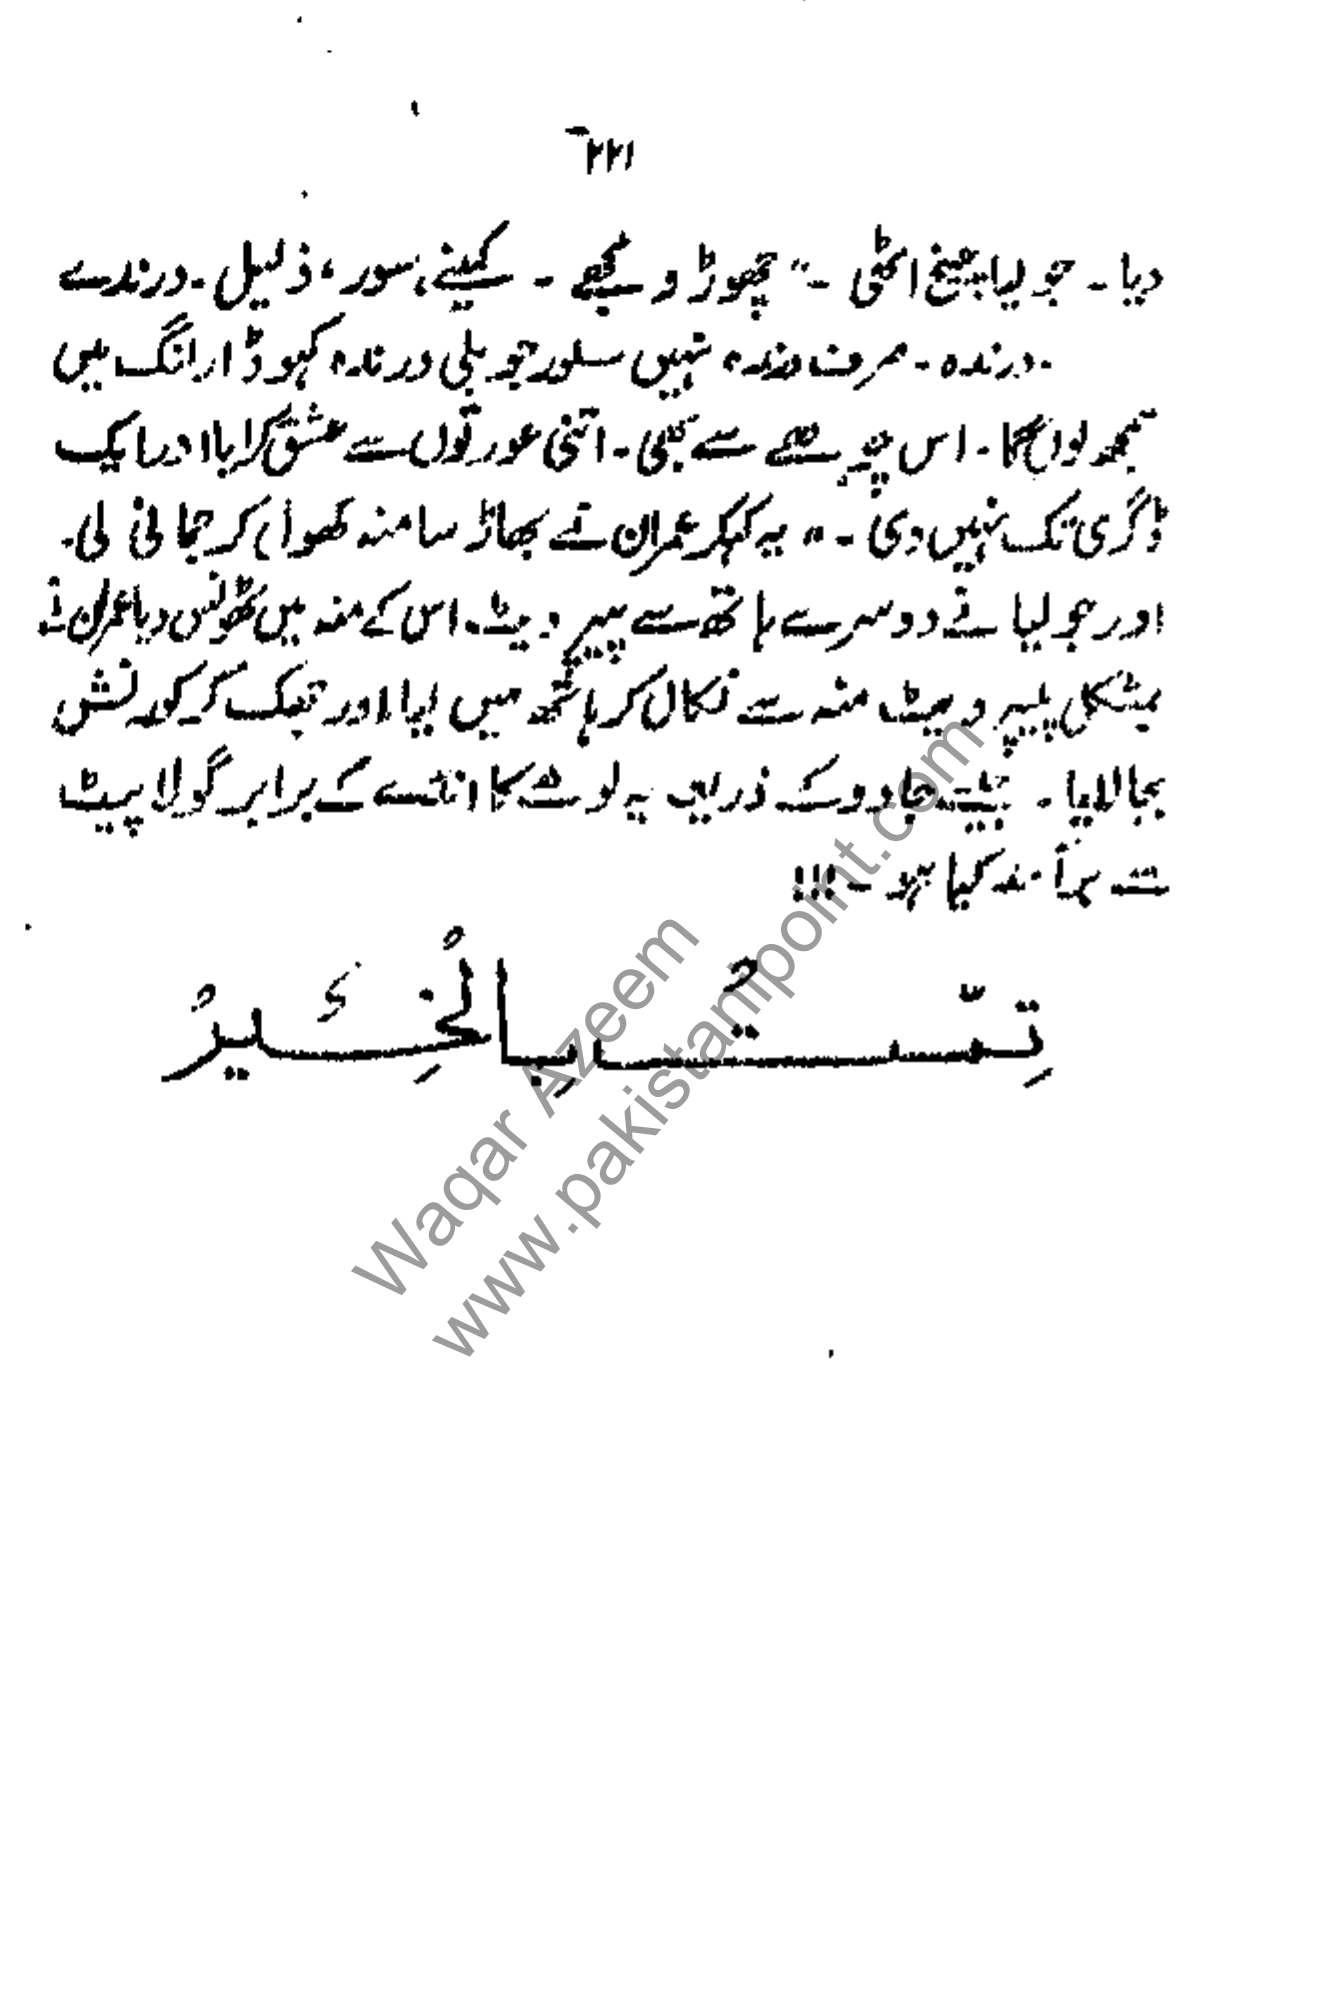 ۲۲۱
دیا۔ جولیا چیخ اٹھی ۔" چھوڑو مجھے ۔ کمینے، سور، ذلیل۔ درندے
۔درندہ۔ صرف درندہ نہیں سلور جوبلی درندہ کہو ڈارلنگ میں
سمجھ لوں گا۔ اس سے بھی۔ اتنی عورتوں سے عشق کرایا اور ایک
ڈگری تک نہیں دی۔" یہ کہہ کر عمران نے پھاڑ سا منہ کھول کر جمائی لی۔
اور جولیا نے دوسرے ہاتھ سے پیپر ویٹ اس کے منہ میں ٹھونس دیا عمران نے
بمشکل پیپر ویٹ منہ سے نکال کر ہاتھ میں لیا اور جھک کر کورنش
بجا لایا۔ جیسے جادو کے ذریعہ یہ لوہے کا انڈے کے برابر گولا پیٹ
سے برآمد کیا ہو۔!!!
تِمّتُ بِالْخَیْرُ
Waqar Azeem
www.pakistanipoint.com